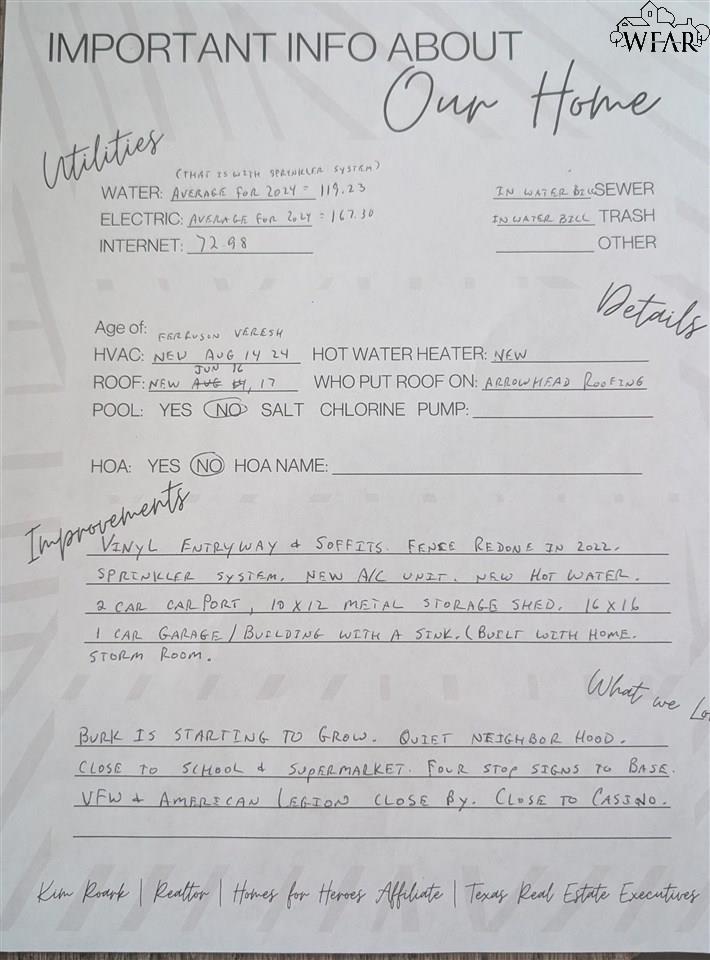 WFAR
IMPORTANT INFO ABOUT
Our Home
Utilities
(THAT IS WITH SPRINKLER SYSTEM)
WATER: AVERAGE FOR 2024 = 119.23 IN WATER BILL SEWER
ELECTRIC: AVERAGE FOR 2024 = 167.30 IN WATER BILL TRASH
INTERNET: 72.98 OTHER
Details
Age of: FERGUSON VERESH
HVAC: NEW AUG 14 24 HOT WATER HEATER: NEW
JUN 16
ROOF: NEW AUG 17 WHO PUT ROOF ON: ARROWHEAD ROOFING
POOL: YES NO SALT CHLORINE PUMP:
HOA: YES NO HOA NAME:
Improvements
VINYL ENTRYWAY & SOFFITS. FENCE REDONE IN 2022.
SPRINKLER SYSTEM. NEW A/C UNIT. NEW HOT WATER.
2 CAR CARPORT, 10 X 12 METAL STORAGE SHED. 16 X 16
1 CAR GARAGE / BUILDING WITH A SINK. (BUILT WITH HOME.
STORM ROOM.
What we Lo
BURK IS STARTING TO GROW. QUIET NEIGHBOR HOOD.
CLOSE TO SCHOOL & SUPERMARKET. FOUR STOP SIGNS TO BASE.
VFW & AMERICAN LEGION CLOSE BY. CLOSE TO CASINO.
Kim Roark | Realtor | Homes for Heroes Affiliate | Texas Real Estate Executives